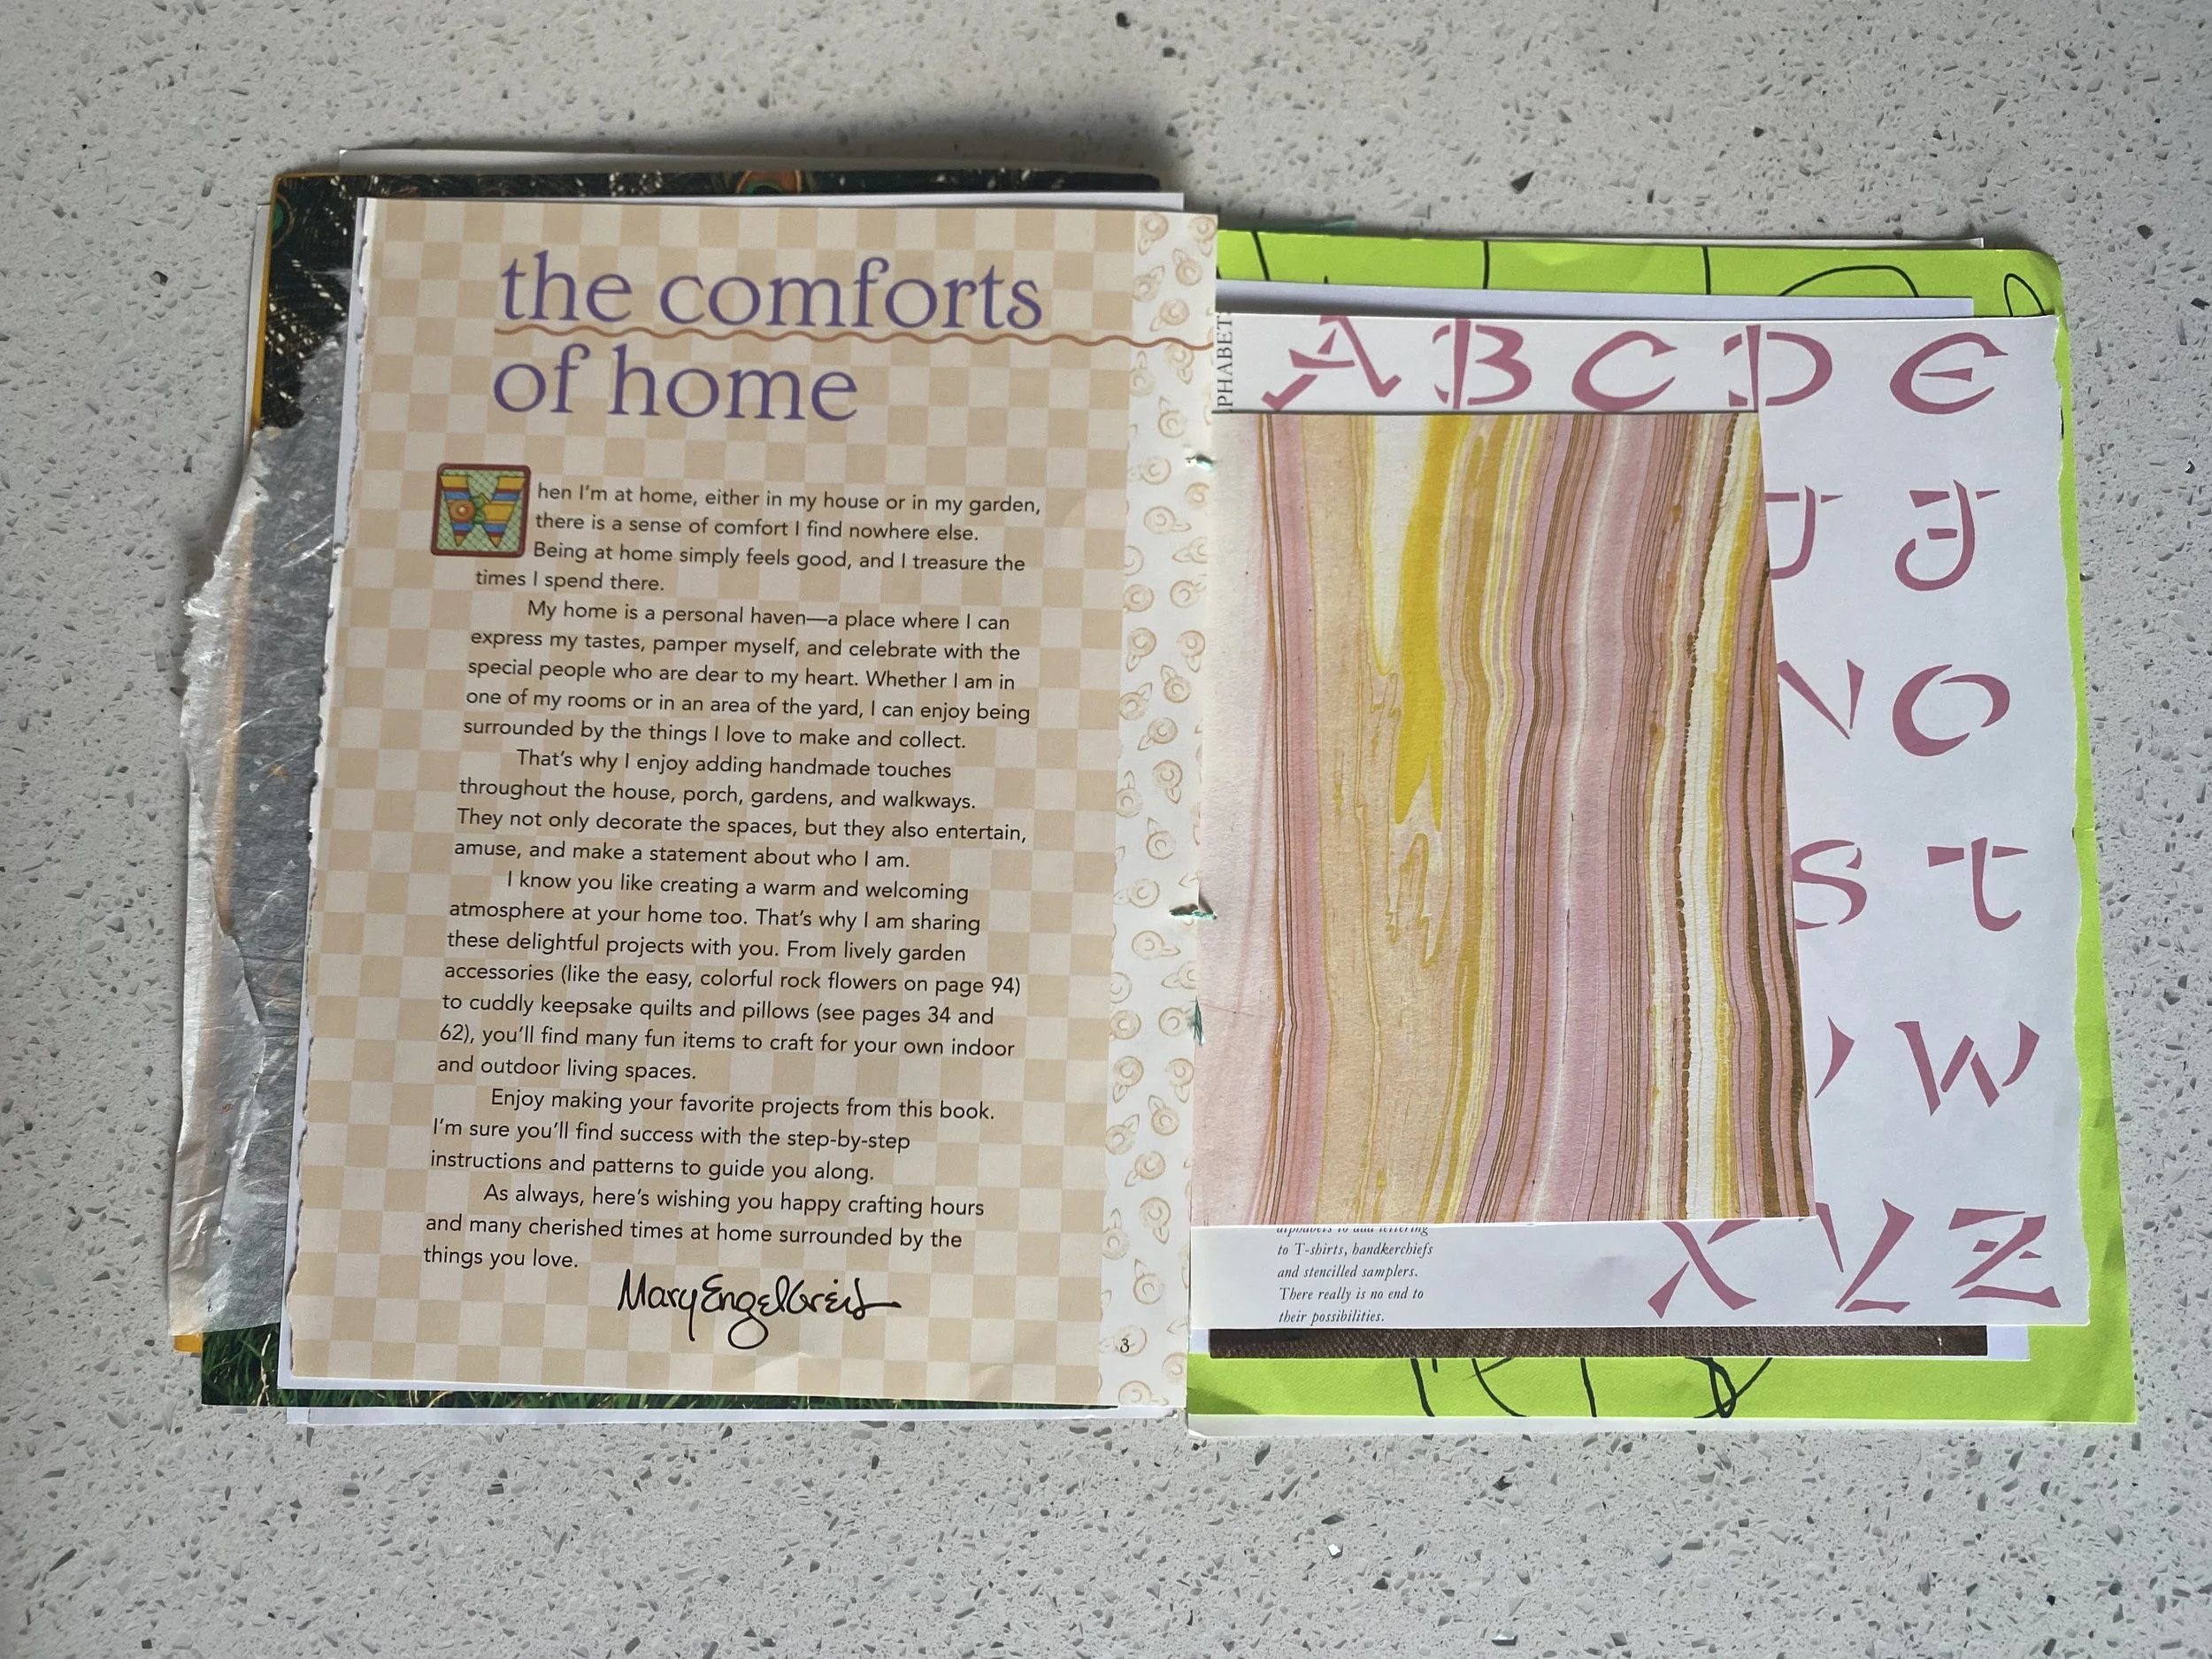 the comforts
of home
When I'm at home, either in my house or in my garden,
there is a sense of comfort I find nowhere else.
Being at home simply feels good, and I treasure the
times I spend there.
My home is a personal haven—a place where I can
express my tastes, pamper myself, and celebrate with the
special people who are dear to my heart. Whether I am in
one of my rooms or in an area of the yard, I can enjoy being
surrounded by the things I love to make and collect.
That's why I enjoy adding handmade touches
throughout the house, porch, gardens, and walkways.
They not only decorate the spaces, but they also entertain,
amuse, and make a statement about who I am.
I know you like creating a warm and welcoming
atmosphere at your home too. That's why I am sharing
these delightful projects with you. From lively garden
accessories (like the easy, colorful rock flowers on page 94)
to cuddly keepsake quilts and pillows (see pages 34 and
62), you'll find many fun items to craft for your own indoor
and outdoor living spaces.
Enjoy making your favorite projects from this book.
I'm sure you'll find success with the step-by-step
instructions and patterns to guide you along.
As always, here's wishing you happy crafting hours
and many cherished times at home surrounded by the
things you love.
Mary Engelbreit
3
PHABET
A B C D E
J
N O
S T
W
X Y Z
alphabets to add lettering
to T-shirts, handkerchiefs
and stencilled samplers.
There really is no end to
their possibilities.